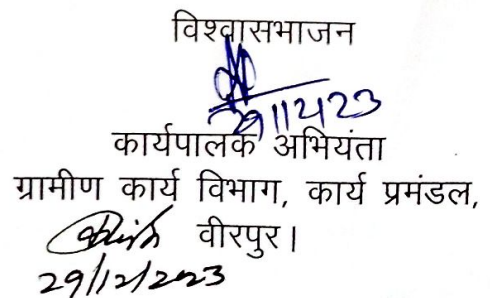 विश्वासभाजन
29/12/23
कार्यपालक अभियंता
ग्रामीण कार्य विभाग, कार्य प्रमंडल,
वीरपुर।
29/12/2023